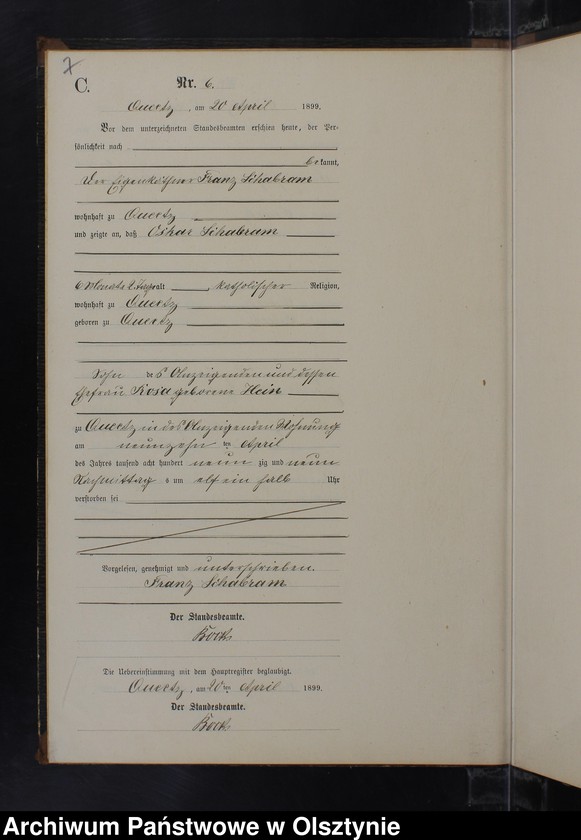 7
C.
Nr. 6.
Quetz, am 20 April 1899.
Vor dem unterzeichneten Standesbeamten erschien heute, der Per-
sönlichkeit nach
bekannt,
der Eigenkäthner Franz Schabram
wohnhaft zu Quetz
und zeigte an, daß Oskar Schabram
6 Monate 2 Tage alt, katholischer Religion,
wohnhaft zu Quetz
geboren zu Quetz
Sohn des Anzeigenden und dessen
Ehefrau Rosa geborene Hein
zu Quetz in des Anzeigenden Wohnung
am neunzehn ten April
des Jahres tausend acht hundert neun zig und neun
Nachmittags um elf ein halb Uhr
verstorben sei
Vorgelesen, genehmigt und unterschrieben.
Franz Schabram
Der Standesbeamte.
Die Uebereinstimmung mit dem Hauptregister beglaubigt.
Quetz, am 20 ten April 1899.
Der Standesbeamte.
Archiwum Państwowe w Olsztynie